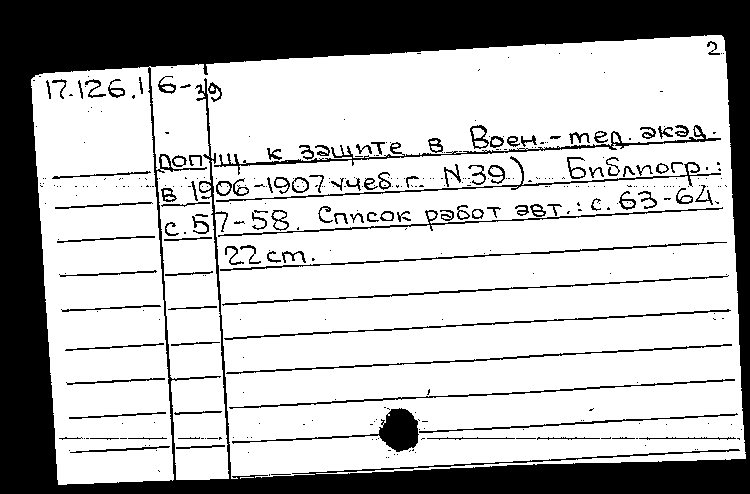 2
17.126.1 6-39
допущ. к защите в Воен.-мед. акад.
в 1906-1907 учеб. г. N 39). Библиогр.:
с. 57-58. Список работ авт.: с. 63-64.
22 cm.